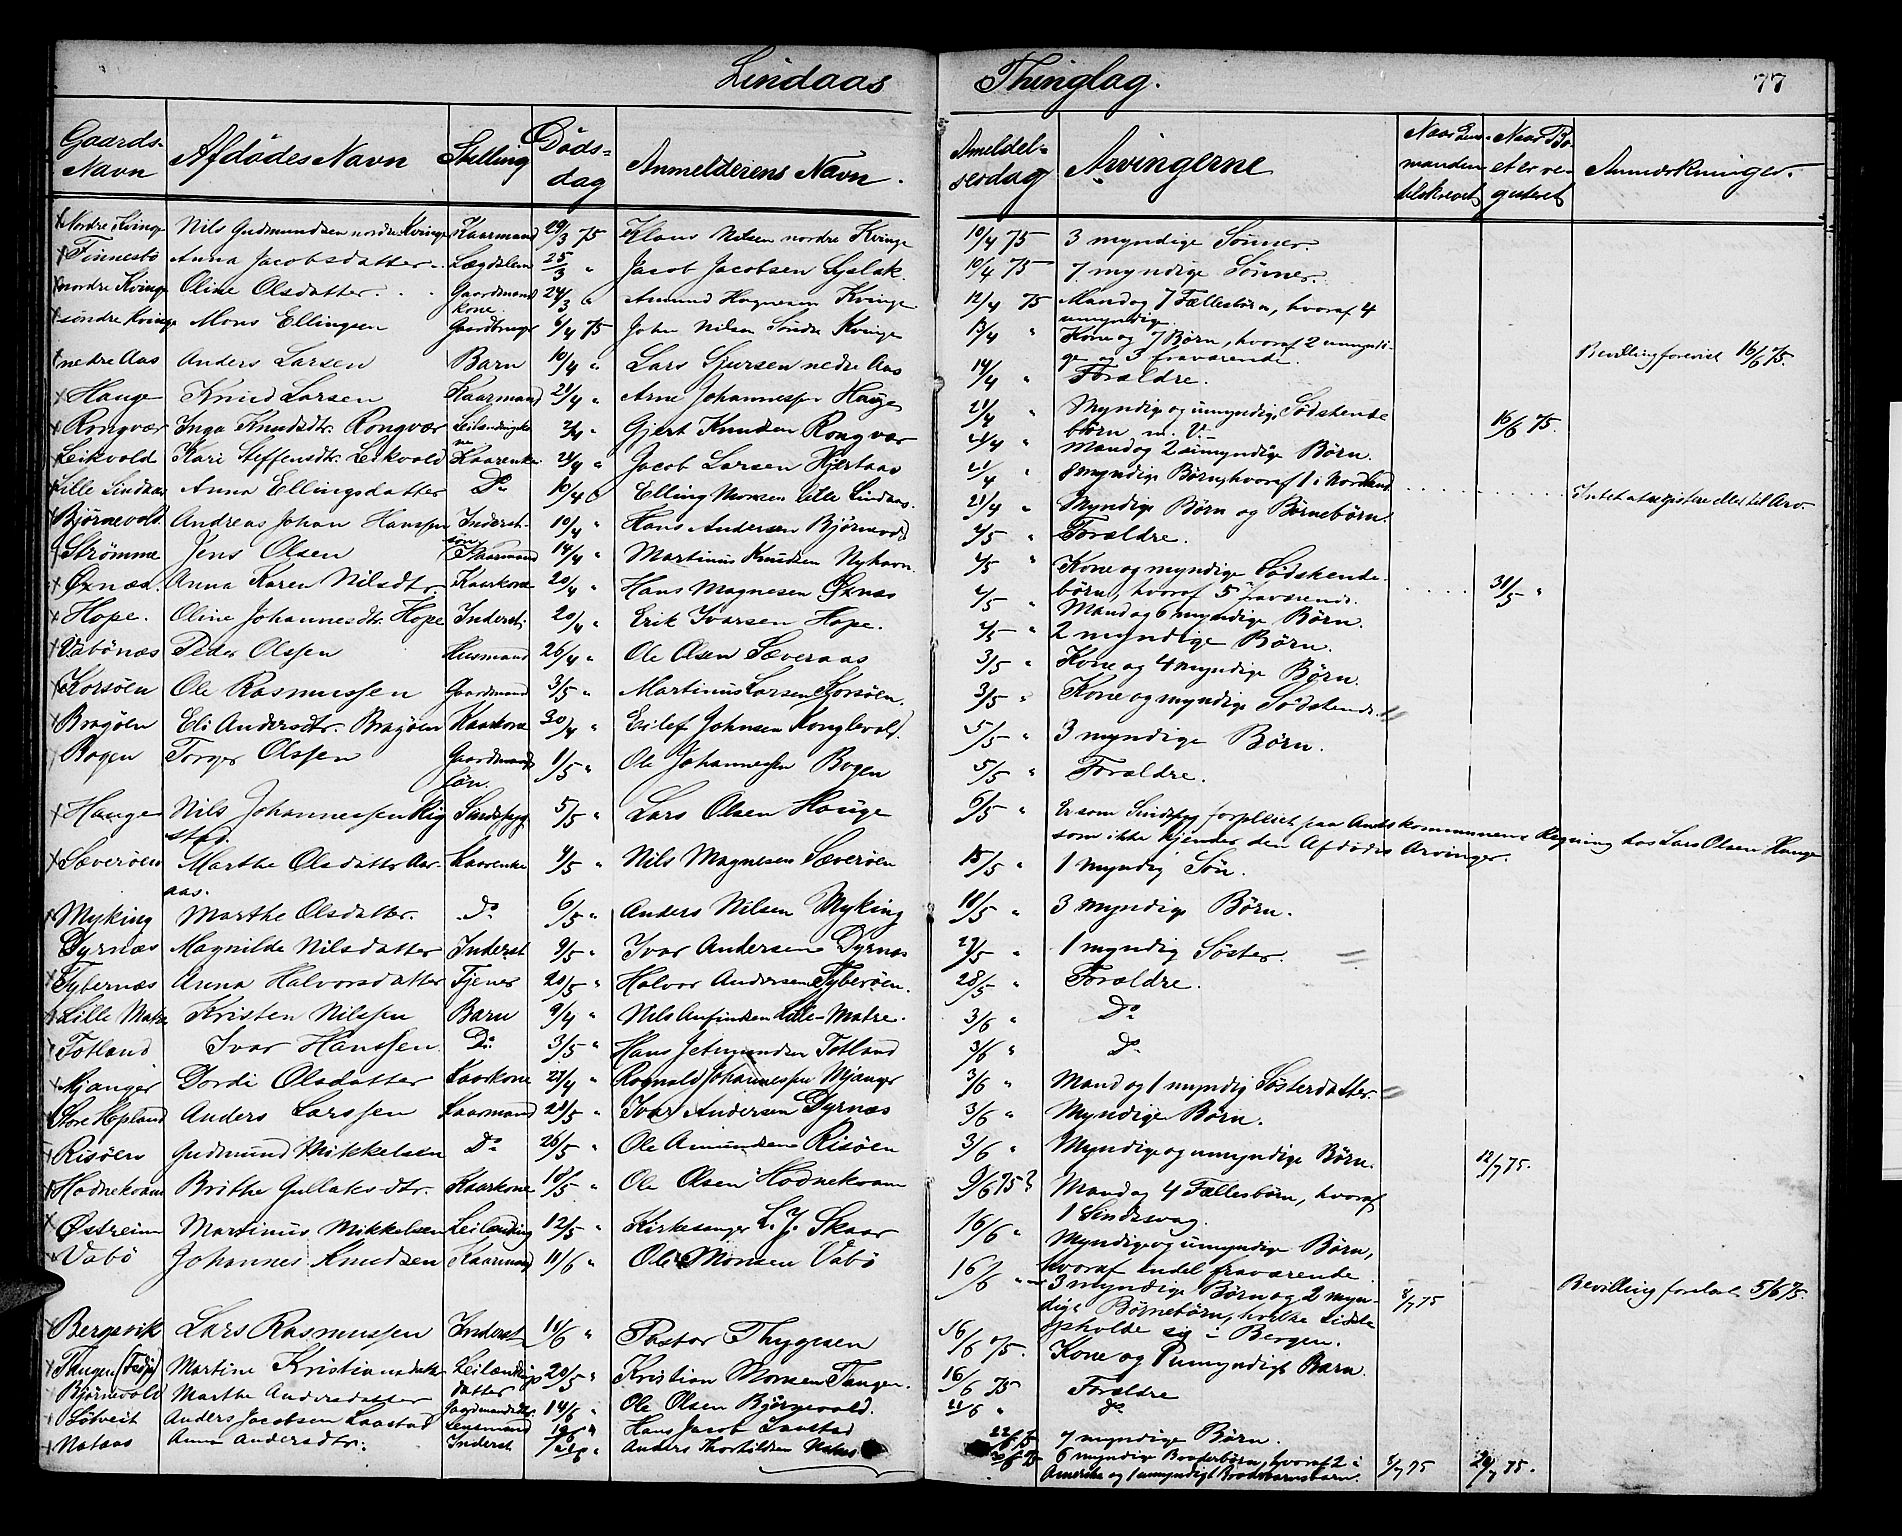 Lindaas Thinglag. 77
Gaards-Navn Afdødes Navn Stilling Døds-dag Anmelderens Navn. Ameldel-sesdag Arvingerne Anmærkninger.
Nordre Kvinge Nils Gudmundsen nordre Kvinge Kaarmand 29/3 75 Klaus Nilsen nordre Kvinge 10/4 75 3 myndige Sønner.
Finnesbø Anna Jacobsdatter Lægdslem 25/3 " Jacob Jacobsen 10/4 75 7 myndige Sønner.
nordre Kvinge Oline Olsdatter Gaardmand kone 24/3 " Amund Kvinge 12/4 75 Mand og 7 Fællesbørn, hvoraf 4 umyndige.
søndre Kvinge Mons Ellingsen Gaardbruger 6/4 75 John Nilsen Søndre Kvinge 13/4 " Kone og 7 Børn, hvoraf 2 umyndi-
ge og 3 fraværende. Bevilling forevist 16/6 75.
nedre Aas Anders Larsen Barn 10/4 " Lars Sjursen nedre Aas 14/4 " Forældre.
Hauge Knud Larsen Kaarmand 21/4 " Arne Johannessen Hauge 21/4 " Myndige og umyndige Sødskende
børn m. V. 16/6 75.
Rongvær Inga Knudsdtr. Rongvær 2/4 " Gjert Knudsen Rongvær 21/4 " Mand og 2 umyndige Børn.
Leikvold Kari Steffensdtr. Leikvold Kaarenke 21/4 " Jacob Larsen Hjertaas 21/4 " 8 myndige Børn, hvoraf 1 i Nordland
Lille Lindaas Anna Ellingsdatter Do 10/4 Elling Monsen lille Lindaas. 21/4 " Myndige Børn og Børnebørn. Intet at registere eller til Arv.
Bjørnevold. Andreas Johan Hanssen Inderst-søn 10/4 " Hans Andersen Bjørnevold 4/5 " Forældre.
Strømme Jens Olsen Kaarmand 14/4 " Martinus Knudsen Nyhavn. 4/5 " Kone og myndige Sødskende-
børn, hvoraf 5 fraværende. 31/5 "
Øxnæs. Anna Karen Nilsdtr. Kaarkone 20/4 " Hans Magnesen Øxnæs 4/5 " Mand og 6 myndige Børn.
Hope. Oline Johannesdtr. Hope Inderst. 20/4 " Erik Ivarsen Hope. 4/5 " 2 myndige Børn.
Vabønæs Peder Olssen Husmand 26/4 " Ole Olsen Sæveraas 3/5 " Kone og 4 myndige Børn.
Korsøen Ole Rasmussen Gaardmand 3/5 " Martinus Larsen Korsøen. 3/5 " Kone og myndige Sødskende.
Bragøen Eli Andersdtr. Bragøen Kaarkone 30/4 " Eilef Johnsen Konglevold. 5/5 " 3 myndige Børn.
Bogen Torger Olssen Gaardmands Søn. 1/5 " Ole Johannessen Bogen 5/5 " Forældre.
Hauge Nils Johannessen Rig-
stad. Sindssyg 5/5 " Lars Olsen Hauge 6/5 " Er som Sindssyg forpleiet paa Amtskommunens Regning hos Lars Olsen Hauge
som ikke kjender den Afdødes Arvinger.
Sæverøen Marthe Olsdatter Aar-
aas. Kaarenke 4/5 " Nils Magnesen Sæverøen 15/5 " 1 myndig Søn.
Myking Marthe Olsdatter. Do 6/5 " Anders Nilsen Myking 18/5 " 3 myndige Børn.
Dyrnæs Magnilde Nilsdatter Inderst 9/5 " Ivar Andersen Dyrnæs 27/5 " 1 myndig Søster.
Tybernæs Anna Halvorsdatter Tjener 20/5 " Halvor Andersen Tyberøen. 28/5 " Forældre.
Lille Matre Kristen Nilssen Barn 9/4 " Nils Anfindsen Lille-Matre. 3/6 " Do
Totland Ivar Hanssen Do 3/5 " Hans Jetmundsen Totland 3/6 " Do
Mjanger Dordi Olsdatter Kaarkone 27/4 " Rognald Johannessen Mjanger 3/6 " Mand og 1 myndig Søsterdatter.
Store Hopland Anders Larssen Kaarmand 21/5 " Ivar Andersen Dyrnæs 3/6 " Myndige Børn.
Risøen Gudmund Mikkelsen Do 26/5 " Ole Amundsen Risøen 3/6 " Myndige og umyndige Børn. 12/7 75.
Hodnekvam Brithe Gullaksdtr. Kaarkone 18/5 " Ole Olsen Hodnekvam 9/6 75? Mand og 4 Fællesbørn, hvoraf
1 Sindssvag.
Østreim Martinus Mikkelsen Leilænding 12/5 " Kirkesanger L. J. Skaar 16/6 " Myndige og umyndige Børn,
hvoraf endel fraværende.
Vabø Johannes Knudsen Kaarmand 11/6 " Ole Monsen Vabø 16/6 " 3 myndige Børn og 2 myn-
dige Børnebørn, hvilke sidste
opholde sig i Bergen. 8/7 75 Bevilling forevist 5/6 75.
Bergsvik Lars Rasmussen Inderst 11/6 " Pastor Thygesen 16/6 75. Kone og 1 umyndigt Barn.
Tangen (Fedje) Martine Kristiansdatter Leilændings datter 20/5 " Kristian Monsen Tangen. 16/6 75 Forældre
Bjørnevold Marthe Andersdatter 14/6 " Ole Olsen Bjørnevold. 21/6 " do
Søtveit Anders Jacobsen Laastad Lensmand Hans Jacob Laastad 22/6 75 7 myndige Børn.
Nataas Anna Andersdtr. Inderst Anders Thorkildsen Nataas 6 myndige Broderbørn, hvoraf 2 i
Amerika og 1 umyndigt Broderbarnsbarn. 8/7 75 24/7 75.